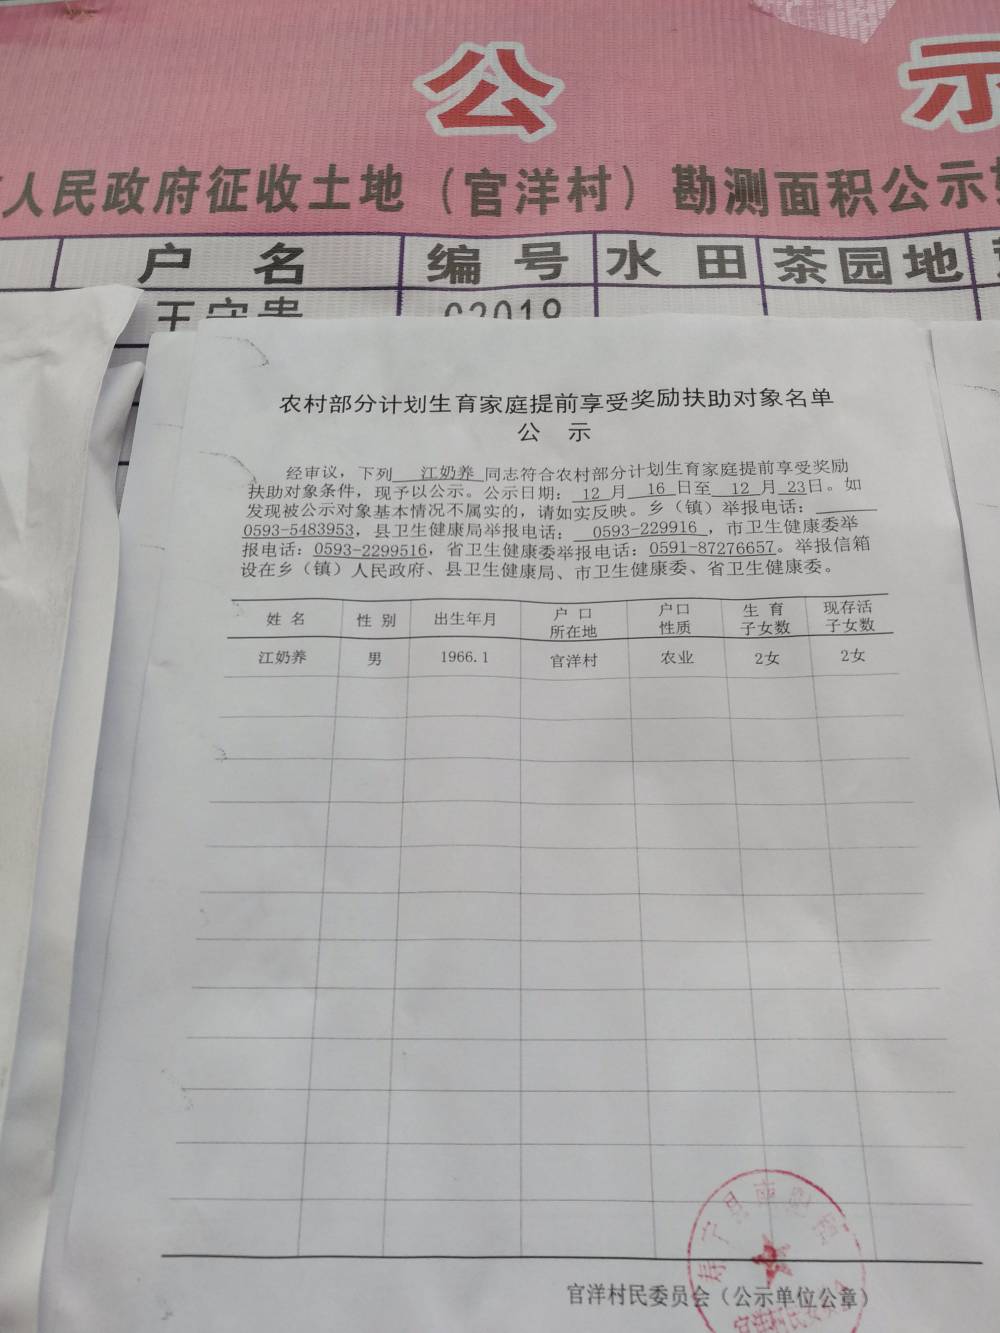 公 示
人民政府征收土地（官洋村）勘测面积公示
户 名 编 号 水 田 茶园地
王守贵 G2019
农村部分计划生育家庭提前享受奖励扶助对象名单
公 示
经审议，下列 江奶养 同志符合农村部分计划生育家庭提前享受奖励
扶助对象条件，现予以公示。公示日期： 12 月 16 日至 12 月 23日。如
发现被公示对象基本情况不属实的，请如实反映。乡（镇）举报电话：
0593-5483953，县卫生健康局举报电话； 0593-229916 ，市卫生健康委举
报电话：0593-2299516，省卫生健康委举报电话：0591-87276657。举报信箱
设在乡（镇）人民政府、县卫生健康局、市卫生健康委、省卫生健康委。
姓 名 性 别 出生年月 户 口 户口 生 育 现存活
所在地 性质 子女数 子女数
江奶养 男 1966.1 官洋村 农业 2女 2女
官洋村民委员会（公示单位公章）